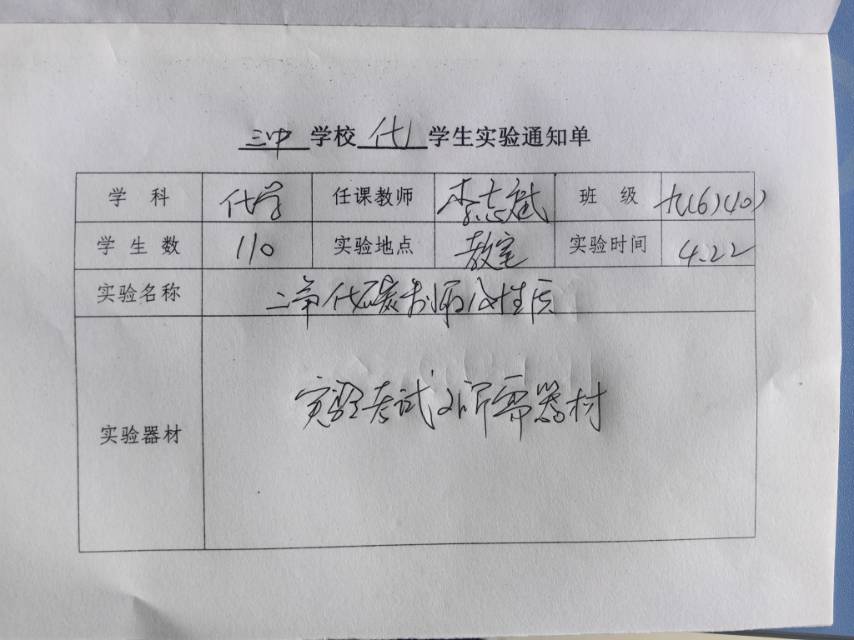 三中 学校 化 学生实验通知单
学 科 化学 任课教师 李志斌 班 级 九(6)(10)
学 生 数 110 实验地点 教室 实验时间 4.22
实验名称 二氧化碳制取及性质
实验器材 实验考试所需器材